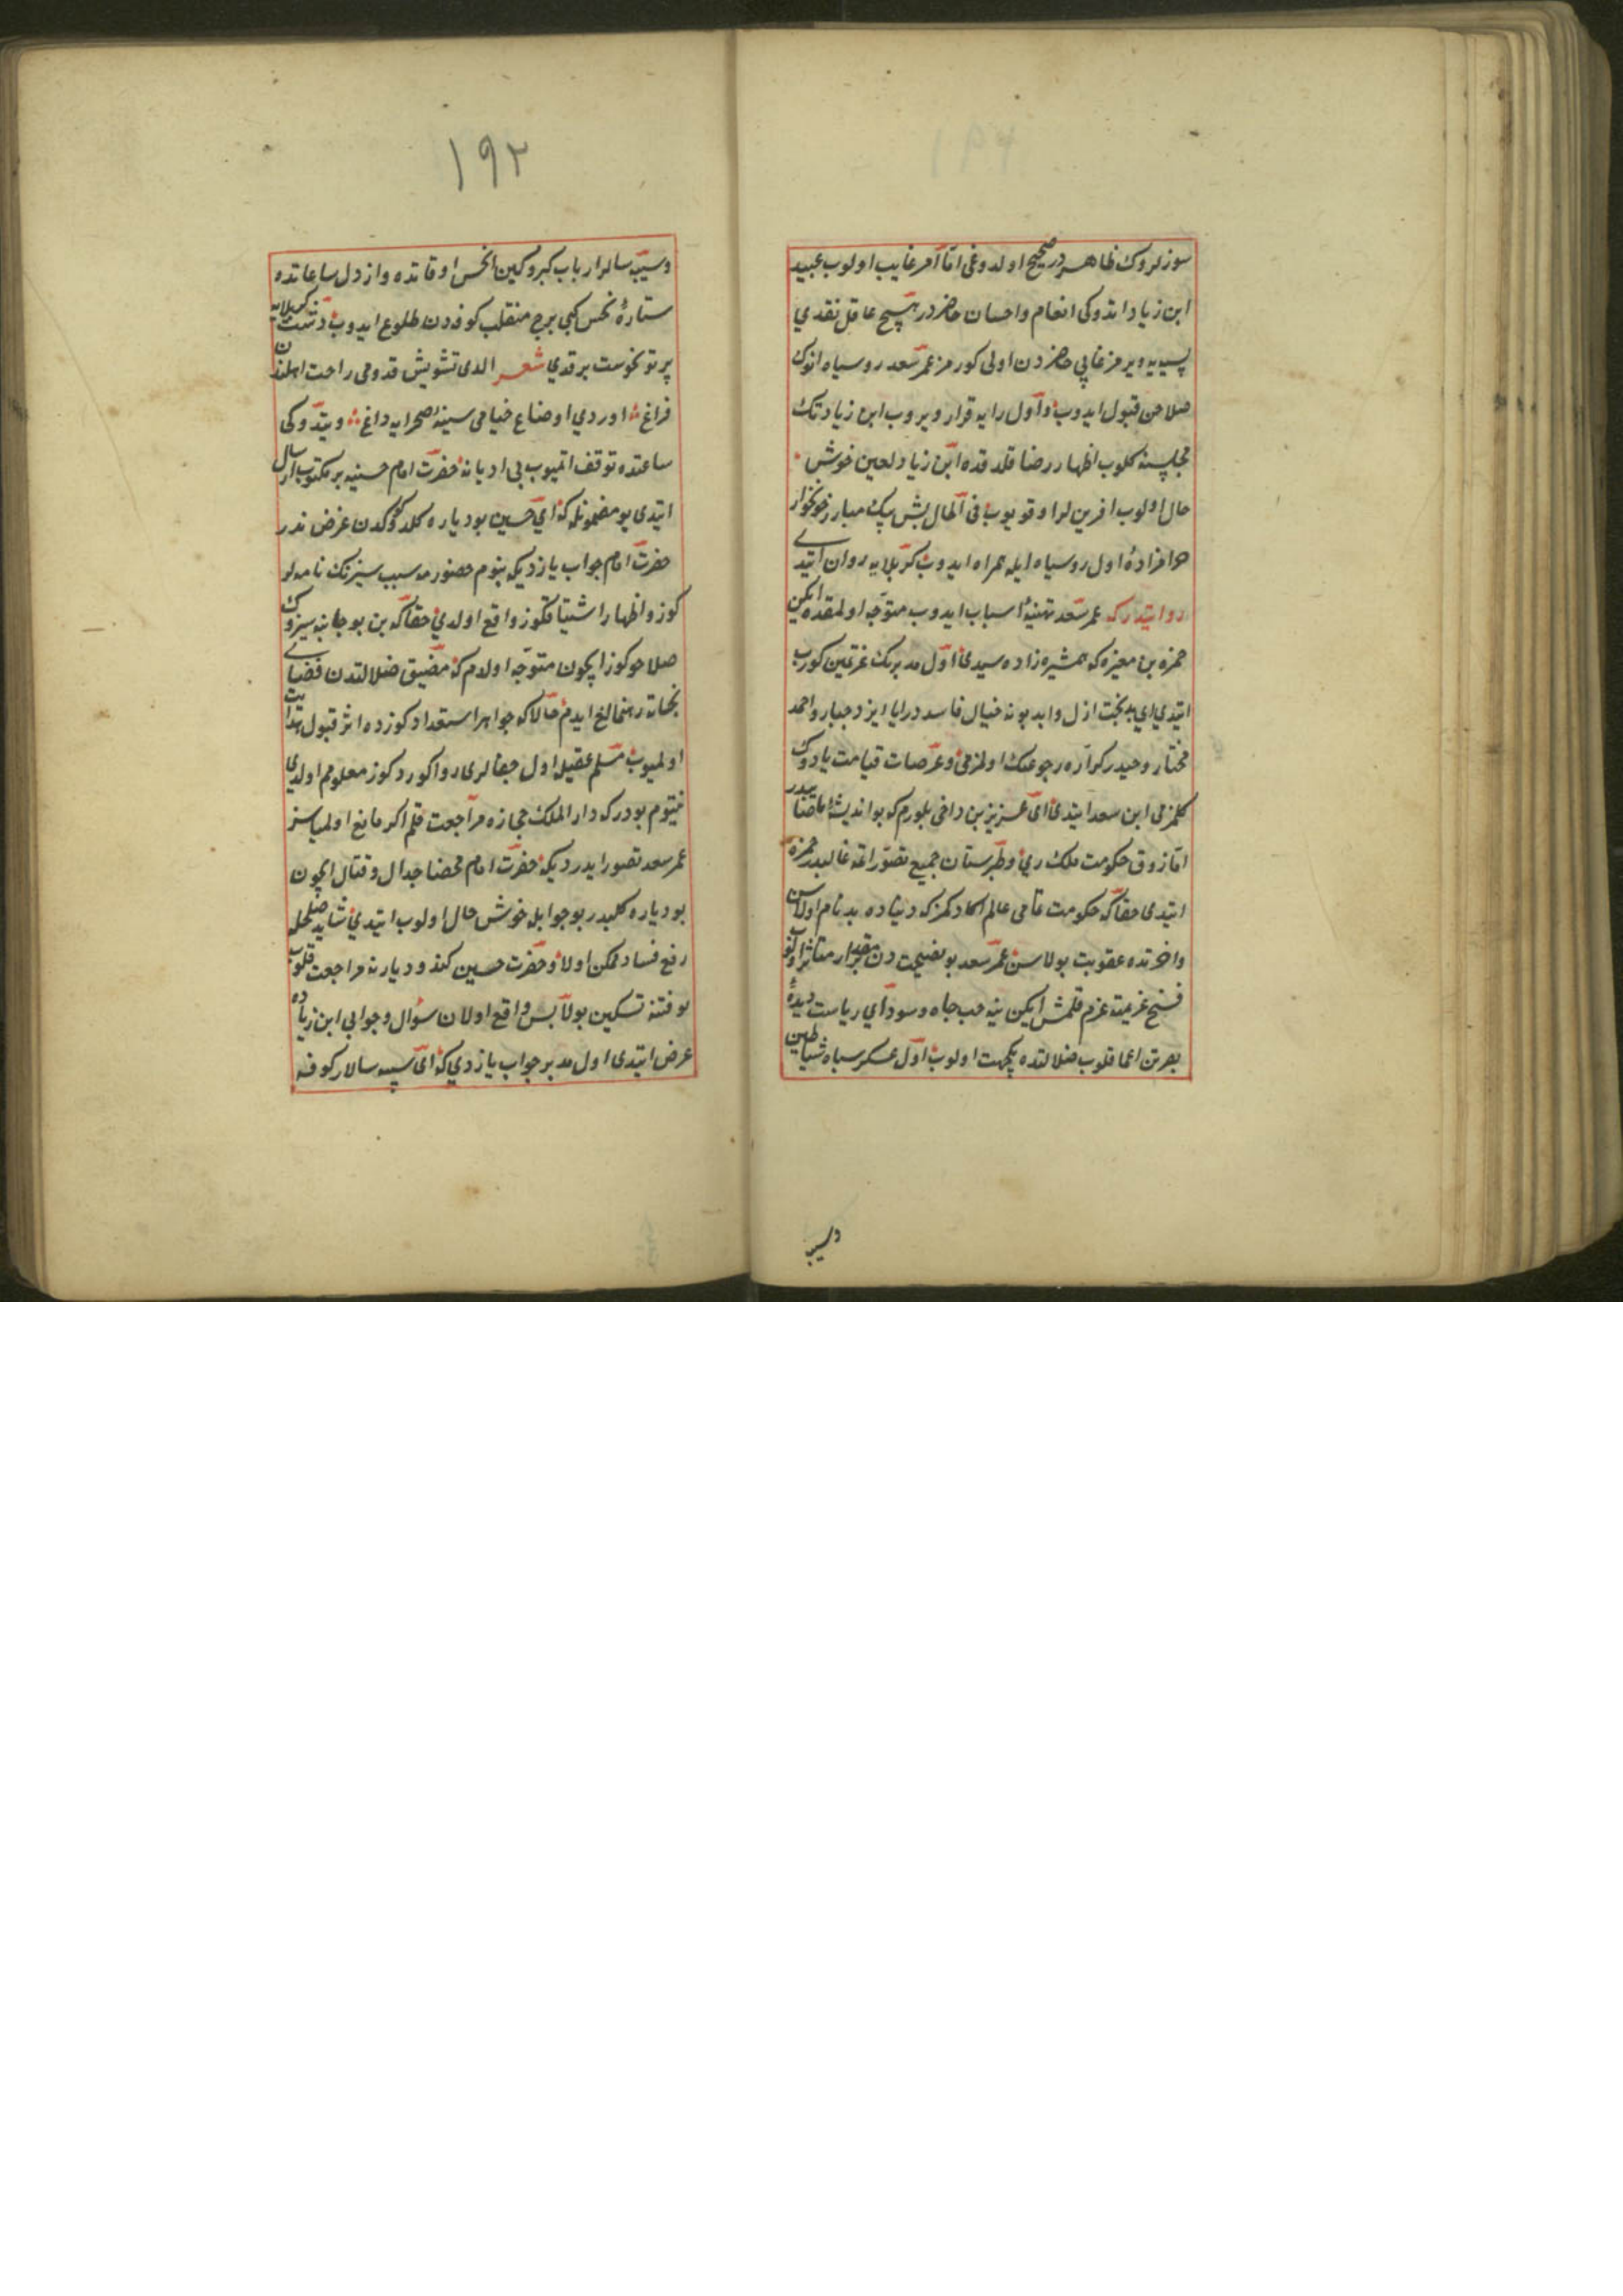 سوزلروك ظاهردر صحیح اولدوغی اما امر غایب اولوب عبید
ابن زیاد اندوكی انعام واحسان حاضردر هیچ عاقل نقدی
نسیه یه ویرمز غایبی حاضردن اولی كورمز عمر سعد روسیاه انوك
صلاحن قبول ایدوب واول رایه قرار ویروب ابن زیادنك
مجلسنه كلوب اظهار رضا قلدقده ابن زیاد لعین خوش
حال اولوب افرین لر اوقویوب فی الحال بش بیك مبارز خونخوار
حرامزاده اول روسیاه ایله همراه ایدوب كربلایه روان ایتدی
روایتدر كه عمر سعد تهیئه اسباب ایدوب متوجه اولمقده ایكن
حمزه بن مغیره كه همشیره زاده سیدی اول مدبرك عزیمتین كورب
ایتدی ای بدبخت ازل وابد بو نه خیال فاسددر ایا ایزد جبار واحمد
مختار وحیدر كراره رجوعك اولمزمی وعرصات قیامت یادوك
كلمزمی ابن سعد ایتدی ای عزیز بن داخی بلورم كه بو اندیشه خطادر
اما ذوق حكومت ملك ری وطبرستان جمیع تصوراتمه غالبدر حمزه
ایتدی حقا كه حكومت تمامی عالم اكا دكمز كه دنیاده بدنام اولاسن
واخرتده عقوبت بولاسن عمر سعد بو نصیحت دن بر مقدار متاثر اولوب
فسخ عزیمته عزم قلمش ایكن ینه حب جاه وسودای ریاست دیده
بصرتن اعما قلوب ضلالتده یكجهت اولوب اول عسكر سیاه شیاطین
وسپه
۱۹۲
وسپه سالار ارباب كبر وكین انحس اوقاتده وارذل ساعاتده
ستاره نحس كبی برج منقلب كوفه دن طلوع ایدوب دشت كربلایه
پرتو نحوست برقدی شعر الدی تشویش قدومی راحت اهلندن
فراغ اوردی اوضاع خیامی سینه صحرایه داغ ویتدوكی
ساعتده توقف اتمیوب بی ادبانه حضرت امام حسینه بر مكتوب ارسال
ایتدی بو مضمونله كه ای حسین بو دیاره كلدوكوكدن غرض ندر
حضرت امام جواب یازدیكه بنوم حضورمه سبب سیزنك نامه لر
كوز واظهار اشتیاقكوز واقع اولدی حقا كه بن بو جانبه سیزوك
صلاحوكوز ایچون متوجه اولدم كه مضیق ضلالتدن فضای
نجاته رهنمالغ ایدم حالا كه جواهر استعدادكوزده اثر قبول هدایت
اولمیوب مسلم عقیله اول جفالری روا كوردكوز معلومم اولدی
نیتوم بودر كه دار الملك حجازه مراجعت قلم اكر مانع اولمیاسز
عمر سعد تصور ایدردیكه حضرت امام محضا جدال وقتال ایچون
بو دیاره كلیدر بو جوابله خوش حال اولوب ایتدی شاید صلحله
رفع فساد ممكن اولا وحضرت حسین كندو دیارنه مراجعت قلوب
بو فتنه تسكین بولا پس واقع اولان سؤال وجوابی ابن زیاده
عرض ایتدی اول مدبر جواب یازدی كه ای سپه سالار كوفه